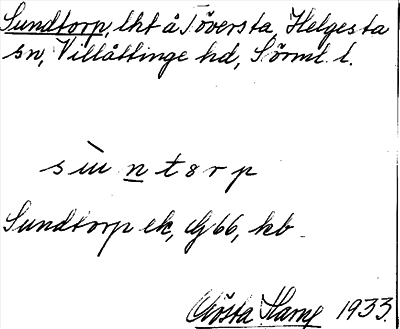 Sundtorp, lht å Töversta, Helgesta
sn, Villåttinge hd, Sörml. l.
sùntorp
Sundtorp ek, Gj 66, kb
Gösta Hamp 1933.